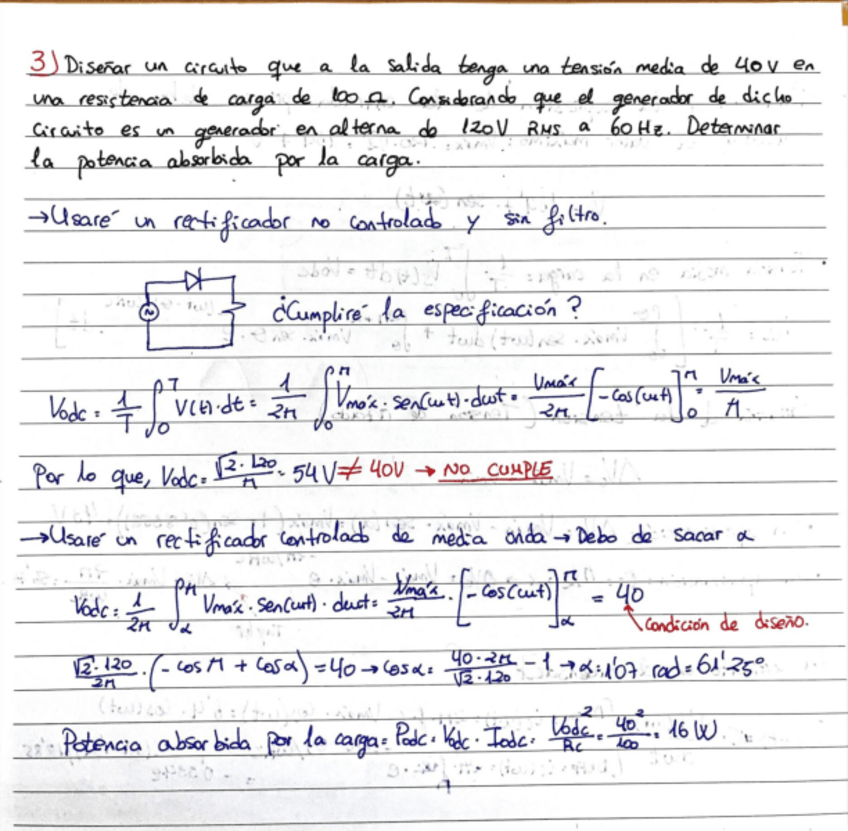 3) Diseñar un circuito que a la salida tenga una tensión media de 40V en
una resistencia de carga de 100 Ω. Considerando que el generador de dicho
circuito es un generador en alterna de 120V RMS a 60 Hz. Determinar
la potencia absorbida por la carga.
→ Usaré un rectificador no controlado y sin filtro.
¿Cumpliré la especificación?
Vodc = 1/T ∫₀ᵀ V(t)·dt = 1/2π ∫₀^π Vmáx·sen(wt)·dwt = Vmáx/2π [-cos(wt)]₀^π = Vmáx/π
Por lo que, Vodc = √2·120/π = 54V ≠ 40V → NO CUMPLE
→ Usaré un rectificador controlado de media onda → Debo de sacar α
Vodc = 1/2π ∫_α^π Vmáx·sen(wt)·dwt = Vmáx/2π · [-cos(wt)]_α^π = 40
Condición de diseño.
√2·120/2π · (-cos π + cos α) = 40 → cos α = 40·2π/√2·120 - 1 → α = 1'07 rad = 61'25°
Potencia absorbida por la carga = Podc = Vodc · Iodc = Vodc²/Rc = 40²/100 = 16 W